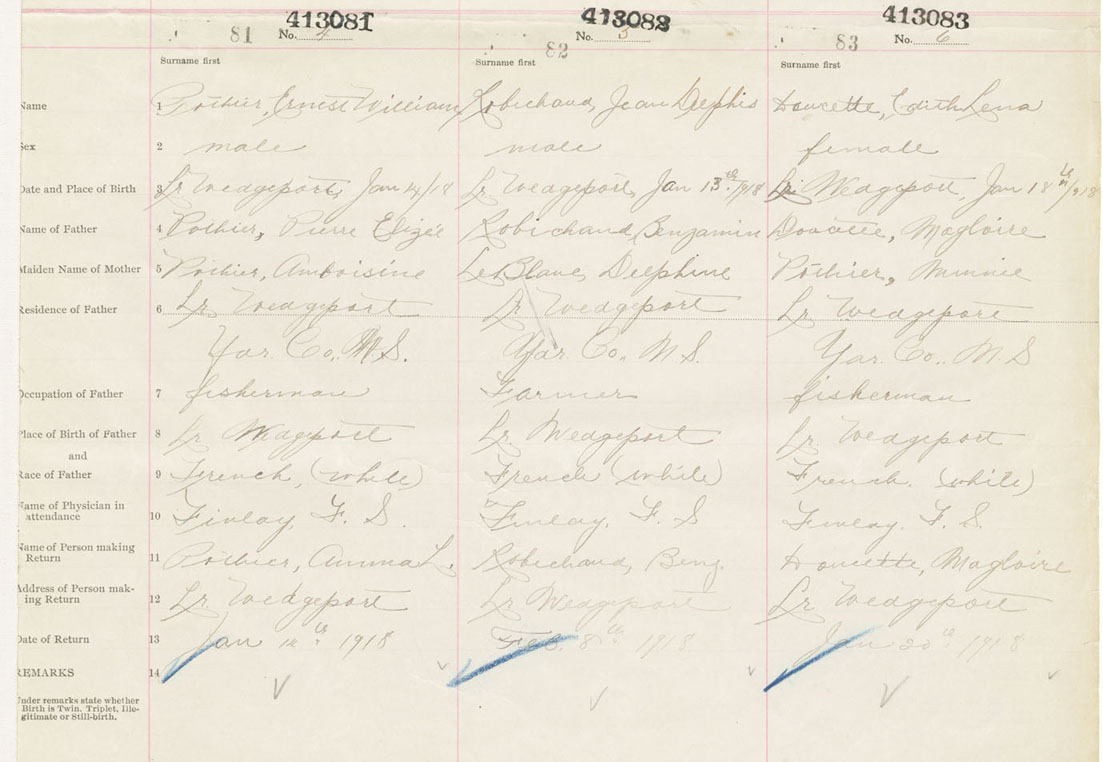 413081 413082 413083
81 No. 4 82 No. 5 83 No. 6
Surname first Surname first Surname first
Name 1 Pothier, Ernest William Robichaud, Jean Delphis Doucette, Edith Lena
Sex 2 male male female
Date and Place of Birth 3 Lr Wedgeport, Jan 14/18 Lr Wedgeport, Jan 13th 1918 Lr Wedgeport, Jan 18th/1918
Name of Father 4 Pothier, Pierre Elizée Robichaud, Benjamin Doucette, Magloire
Maiden Name of Mother 5 Pothier, Ambroisine LeBlanc, Delphine Pothier, Minnie
Residence of Father 6 Lr Wedgeport Lr Wedgeport Lr Wedgeport
Yar. Co., N.S. Yar. Co., N.S. Yar. Co., N.S
Occupation of Father 7 fisherman Farmer fisherman
Place of Birth of Father 8 Lr Wedgeport Lr Wedgeport Lr Wedgeport
and
Race of Father 9 French, (white) French (white) French. (white)
Name of Physician in
attendance 10 Finlay, F. S. Finlay, F. S Finlay. F. S.
Name of Person making
Return 11 Pothier, Anna L. Robichaud, Benj. Doucette, Magloire
Address of Person mak-
ing Return 12 Lr Wedgeport Lr Wedgeport Lr Wedgeport
Date of Return 13 Jan 1918 Feb. 8th 1918 Jan 20th 1918
REMARKS 14
Under remarks state whether
Birth is Twin, Triplet, Ille-
gitimate or Still-birth.